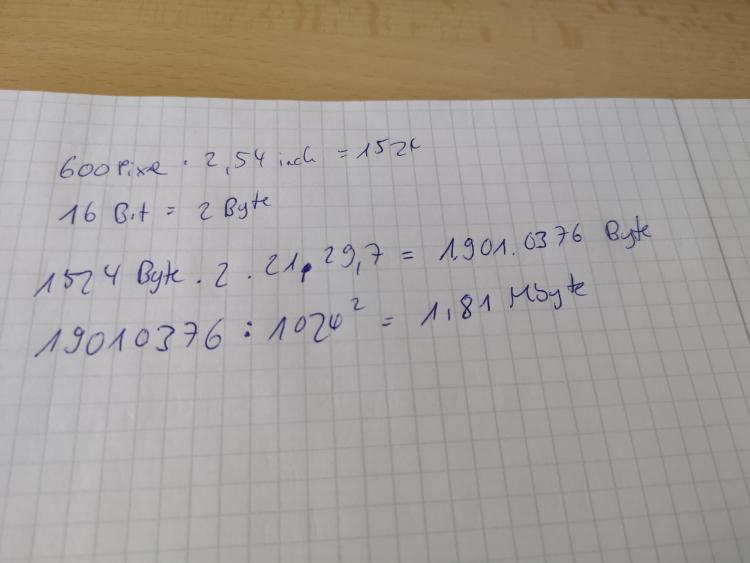 600 Pixel · 2,54 inch = 1524
16 Bit = 2 Byte
1524 Byte · 2 · 21 · 29,7 = 1901.0376 Byte
19010376 : 1024² = 1,81 Mbyte